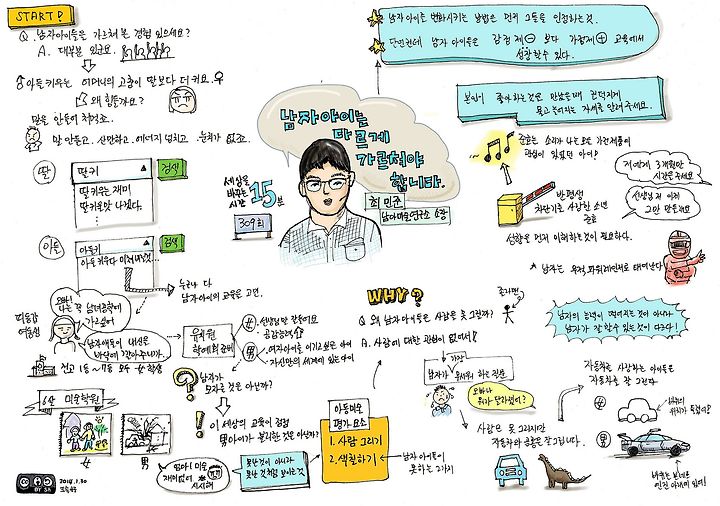 START?
Q. 남자아이들은 가르쳐 본 경험 있으세요?
A. 대부분 있군요.
아들키우는 어머니의 고충이 딸보다 더 커요.
왜 힘든가요?
말을 안들어 쳐먹어요.
말 안듣고. 산만하고. 에너지 넘치고 눈치가 없죠.
딸
딸키
검색
딸 키우는 재미
딸 키우면 나겠다.
아들
아들키
검색
아들 키우다 미쳐버리겠
누구나 다
남자아이의 교육은 고민.
남자아이는
다르게
가르쳐야
합니다.
세상을
바꾸는
시간
15분
309회
최민준
남아미술연구소 소장
남자아이를 변화시키는 방법은 먼저 그들을 인정하는 것.
단언컨데 남자 아이들은 감점제⊖ 보다 가점제⊕ 교육에서
성장할수 있다.
본인이 좋아하는것을 만났을때 진득하게
물고 늘어지는 자세를 알려주세요.
준호는 소리가 나는 모든 가전제품에
관심이 있었던 아이?
저에게 3개월만
시간을 주세요
선생님 저 이제
그만 만들래요
반평생
차단기를 사랑한 소년
준호
성향을 먼저 이해하는것이 필요하다.
* 남자는 우적, 파워레인저로 태어난다
WHY?
Q. 왜 남자아이들은 사람을 못 그릴까?
A. 사람에 대한 관심이 없어서!
졸라맨
가장
남자가 무서워 하는 질문
오빠 나
뭐가 달라졌어?
사람은 못 그리지만
자동차와 공룡은 잘 그립니다.
남자의 능력이 떨어지는 것이 아니라
남자가 잘 할수 있는것이 다르다!
자동차를 사랑하는 아이들은
자동차를 잘 그린다
女
男
여동생
오빠!
남녀공학에
가고싶어
남자애들이 내신을
바닥에 깔아주니까.
전교 1등~ 등 모두 女학생
유치원
학예회 준비
女. 선생님만 만들어요
공감능력
男. 여자아이를 이기고 싶은 아이
자신만의 세계에 있는 아이
남자가
모자른 것은 아닐까?
이 세상의 교육이 점점
男아이가 불리한 것은 아닐까?
6살 미술학원
女
男
엄마! 미술
재미없어
시시해
못난것이 아니라
못난 것처럼 보이는것
아동미술
평가 요소
1. 사람 그리기
2. 색칠하기
남자 아이들이
못하는 2가지
BY SA
2014.1.30